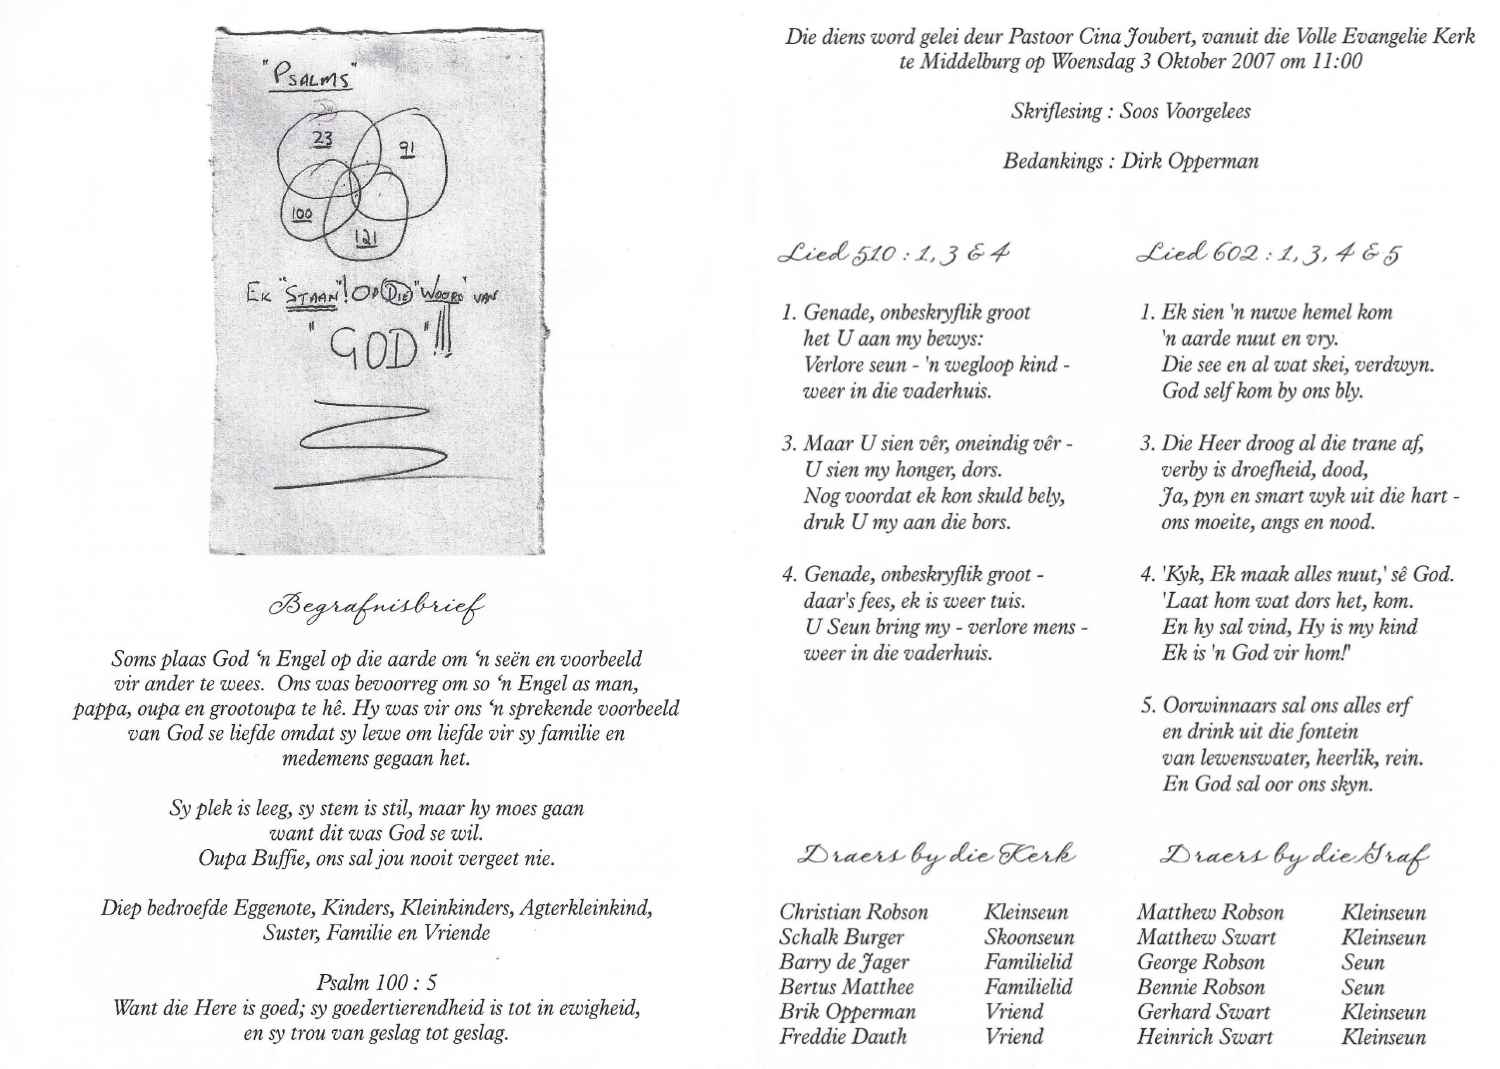 "PSALMS"
23
91
100
121
EK "STAAN"! OP DIE "WOORD" VAN
"GOD"!!!
Begrafnisbrief
Soms plaas God ‘n Engel op die aarde om ‘n seën en voorbeeld
vir ander te wees. Ons was bevoorreg om so ‘n Engel as man,
pappa, oupa en grootoupa te hê. Hy was vir ons ‘n sprekende voorbeeld
van God se liefde omdat sy lewe om liefde vir sy familie en
medemens gegaan het.
Sy plek is leeg, sy stem is stil, maar hy moes gaan
want dit was God se wil.
Oupa Buffie, ons sal jou nooit vergeet nie.
Diep bedroefde Eggenote, Kinders, Kleinkinders, Agterkleinkind,
Suster, Familie en Vriende
Psalm 100 : 5
Want die Here is goed; sy goedertierendheid is tot in ewigheid,
en sy trou van geslag tot geslag.
Die diens word gelei deur Pastoor Cina Joubert, vanuit die Volle Evangelie Kerk
te Middelburg op Woensdag 3 Oktober 2007 om 11:00
Skriflesing : Soos Voorgelees
Bedankings : Dirk Opperman
Lied 510 : 1, 3 & 4
1. Genade, onbeskryflik groot
het U aan my bewys:
Verlore seun - 'n wegloop kind -
weer in die vaderhuis.
3. Maar U sien vêr, oneindig vêr -
U sien my honger, dors.
Nog voordat ek kon skuld bely,
druk U my aan die bors.
4. Genade, onbeskryflik groot -
daar's fees, ek is weer tuis.
U Seun bring my - verlore mens -
weer in die vaderhuis.
Lied 602 : 1, 3, 4 & 5
1. Ek sien 'n nuwe hemel kom
'n aarde nuut en vry.
Die see en al wat skei, verdwyn.
God self kom by ons bly.
3. Die Heer droog al die trane af,
verby is droefheid, dood,
Ja, pyn en smart wyk uit die hart -
ons moeite, angs en nood.
4. 'Kyk, Ek maak alles nuut,' sê God.
'Laat hom wat dors het, kom.
En hy sal vind, Hy is my kind
Ek is 'n God vir hom!'
5. Oorwinnaars sal ons alles erf
en drink uit die fontein
van lewenswater, heerlik, rein.
En God sal oor ons skyn.
Draers by die Kerk
Christian Robson Kleinseun
Schalk Burger Skoonseun
Barry de Jager Familielid
Bertus Matthee Familielid
Brik Opperman Vriend
Freddie Dauth Vriend
Draers by die Graf
Matthew Robson Kleinseun
Matthew Swart Kleinseun
George Robson Seun
Bennie Robson Seun
Gerhard Swart Kleinseun
Heinrich Swart Kleinseun